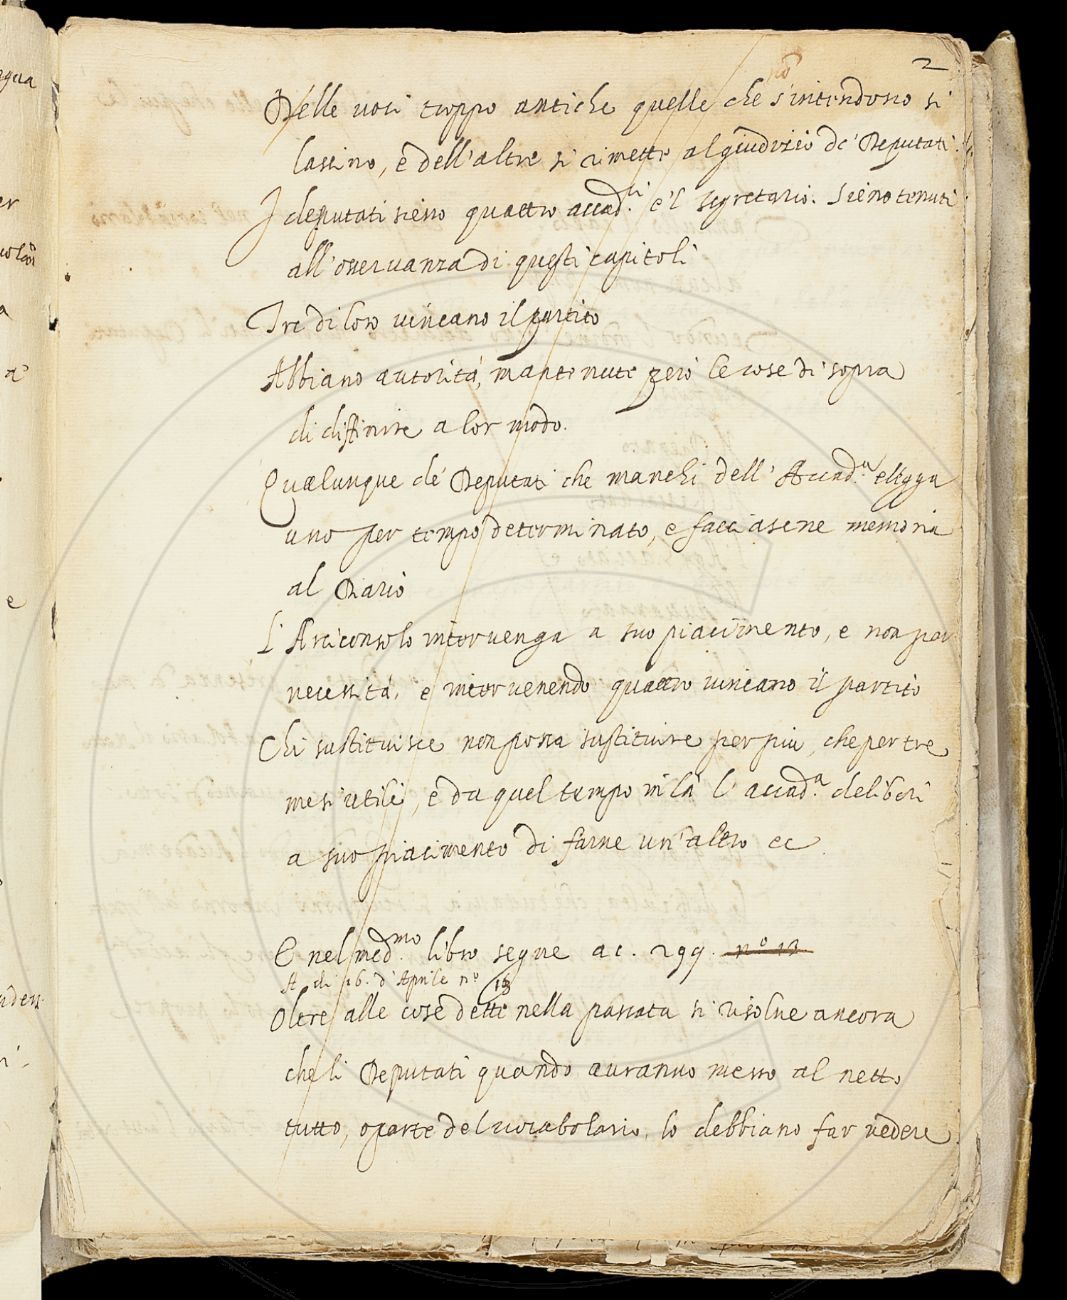 2
Delle voci troppo antiche quelle che s'intendono si
lascino, e dell'altre si rimette al giudizio de' Deputati.
I deputati sieno quattro accad.ci e 'l segretario. Sieno tenuti
all'osservanza di questi capitoli
Tre di loro vincano il partito
Abbiano autorità, mantenute però le cose di sopra
di diffinire a lor modo.
Qualunque de' Deputati che manchi dell' Accad.a elegga
uno per tempo determinato, e facciasene memoria
al Diario
L' Arciconsolo intervenga a suo piacimento, e non per
necessità, e intervenendo quattro vincano il partito
Chi sustituisce non possa sustituire per più, che per tre
mesi utili, e da quel tempo in là l' accad.a deliberi
a suo piacimento di farne un' altro ec
E nel med.mo libro segue a c. 299. n.o 13
A di 16. d'Aprile n.o 13
Oltre alle cose dette nella passata si risolve ancora
che li Deputati quando avranno messo al netto
tutto, o parte del vocabolario, lo debbiano far vedere